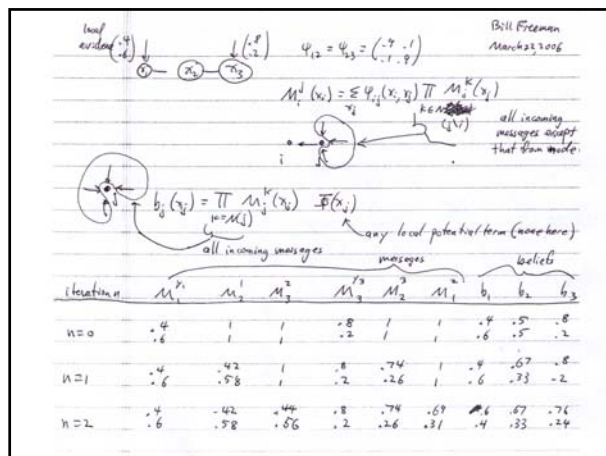 Bill Freeman
March 22, 2006
local evidence (.4 .6)
(.8 .2)
x1 x2 x3
Ψ12 = Ψ23 = (.9 .1
.1 .9)
M_i^j (x_i) = Σ_{x_j} Ψ_ij (x_i, x_j) Π_{k∈N(j)\i} M_j^k (x_j)
all incoming
messages except
that from node i
i
b_j (x_j) = Π_{k∈N(j)} M_j^k (x_j) Φ(x_j)
any local potential term (none here)
all incoming messages
messages
beliefs
iteration n M_1^{y1} M_2^1 M_3^2 M_3^{y3} M_2^3 M_1^2 b1 b2 b3
n=0 .4 1 1 .8 1 1 .4 .5 .8
.6 1 1 .2 1 1 .6 .5 .2
n=1 .4 .42 1 .8 .74 1 .4 .67 .8
.6 .58 1 .2 .26 1 .6 .33 .2
n=2 .4 .42 .44 .8 .74 .69 .6 .67 .76
.6 .58 .56 .2 .26 .31 .4 .33 .24